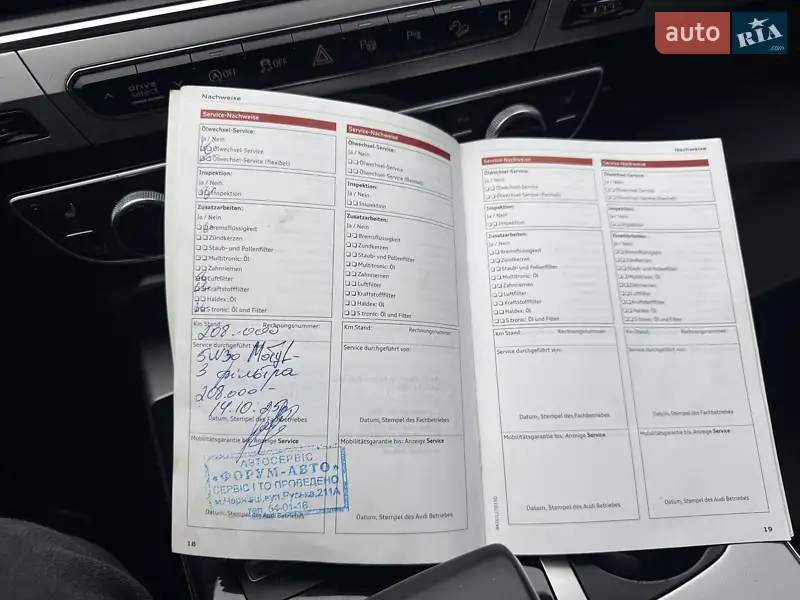 auto
RIA
.com
drive
select
OFF
OFF
Nachweise
Service-Nachweise
Ölwechsel-Service:
Ja / Nein
Ölwechsel-Service
Ölwechsel-Service (flexibel)
Inspektion:
Ja / Nein
Inspektion
Zusatzarbeiten:
Ja / Nein
Bremsflüssigkeit
Zündkerzen
Staub- und Pollenfilter
Multitronic: Öl
Zahnriemen
Luftfilter
Kraftstofffilter
Haldex: Öl
S tronic: Öl und Filter
Km Stand: Rechnungsnummer:
208.000
Service durchgeführt von:
5W30 Motyl-
3 фільтра
208.000-
14.10.25р
Datum, Stempel des Fachbetriebes
Mobilitätsgarantie bis: Anzeige Service
АВТОСЕРВІС
«ФОРУМ-АВТО»
СЕРВІС І ТО ПРОВЕДЕНО
м.Чернівці,вул.Руська,211А
тел. 54-01-16
Datum, Stempel des Audi Betriebes
18
Service-Nachweise
Ölwechsel-Service:
Ja / Nein
Ölwechsel-Service
Ölwechsel-Service (flexibel)
Inspektion:
Ja / Nein
Inspektion
Zusatzarbeiten:
Ja / Nein
Bremsflüssigkeit
Zündkerzen
Staub- und Pollenfilter
Multitronic: Öl
Zahnriemen
Luftfilter
Kraftstofffilter
Haldex: Öl
S tronic: Öl und Filter
Km Stand: Rechnungsnummer:
Service durchgeführt von:
Datum, Stempel des Fachbetriebes
Mobilitätsgarantie bis: Anzeige Service
Datum, Stempel des Audi Betriebes
Nachweise
Service-Nachweise
Ölwechsel-Service:
Ja / Nein
Ölwechsel-Service
Ölwechsel-Service (flexibel)
Inspektion:
Ja / Nein
Inspektion
Zusatzarbeiten:
Ja / Nein
Bremsflüssigkeit
Zündkerzen
Staub- und Pollenfilter
Multitronic: Öl
Zahnriemen
Luftfilter
Kraftstofffilter
Haldex: Öl
S tronic: Öl und Filter
Km Stand: Rechnungsnummer:
Service durchgeführt von:
Datum, Stempel des Fachbetriebes
Mobilitätsgarantie bis: Anzeige Service
Datum, Stempel des Audi Betriebes
Service-Nachweise
Ölwechsel-Service:
Ja / Nein
Ölwechsel-Service
Ölwechsel-Service (flexibel)
Inspektion:
Ja / Nein
Inspektion
Zusatzarbeiten:
Ja / Nein
Bremsflüssigkeit
Zündkerzen
Staub- und Pollenfilter
Multitronic: Öl
Zahnriemen
Luftfilter
Kraftstofffilter
Haldex: Öl
S tronic: Öl und Filter
Km Stand: Rechnungsnummer:
Service durchgeführt von:
Datum, Stempel des Fachbetriebes
Mobilitätsgarantie bis: Anzeige Service
Datum, Stempel des Audi Betriebes
19